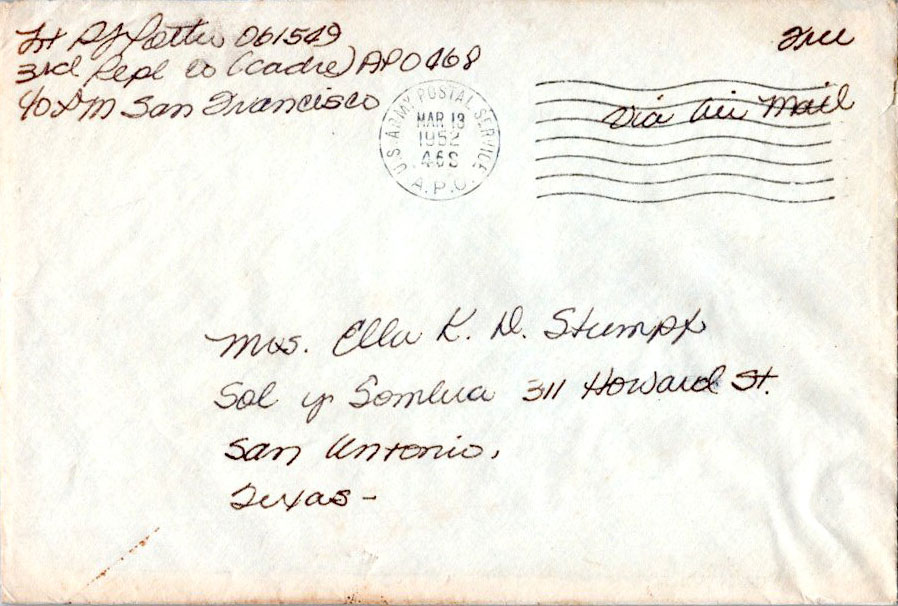 Lt RJ Potter 061549
Free
3rd Repl Co (Cadre) APO 468
c/o PM San Francisco
Via Air Mail
U.S. ARMY POSTAL SERVICE
MAR 13
1952
468
A.P.O.
Mrs. Ella K. D. Stumpf
Sol y Sombra 311 Howard St.
San Antonio,
Texas -